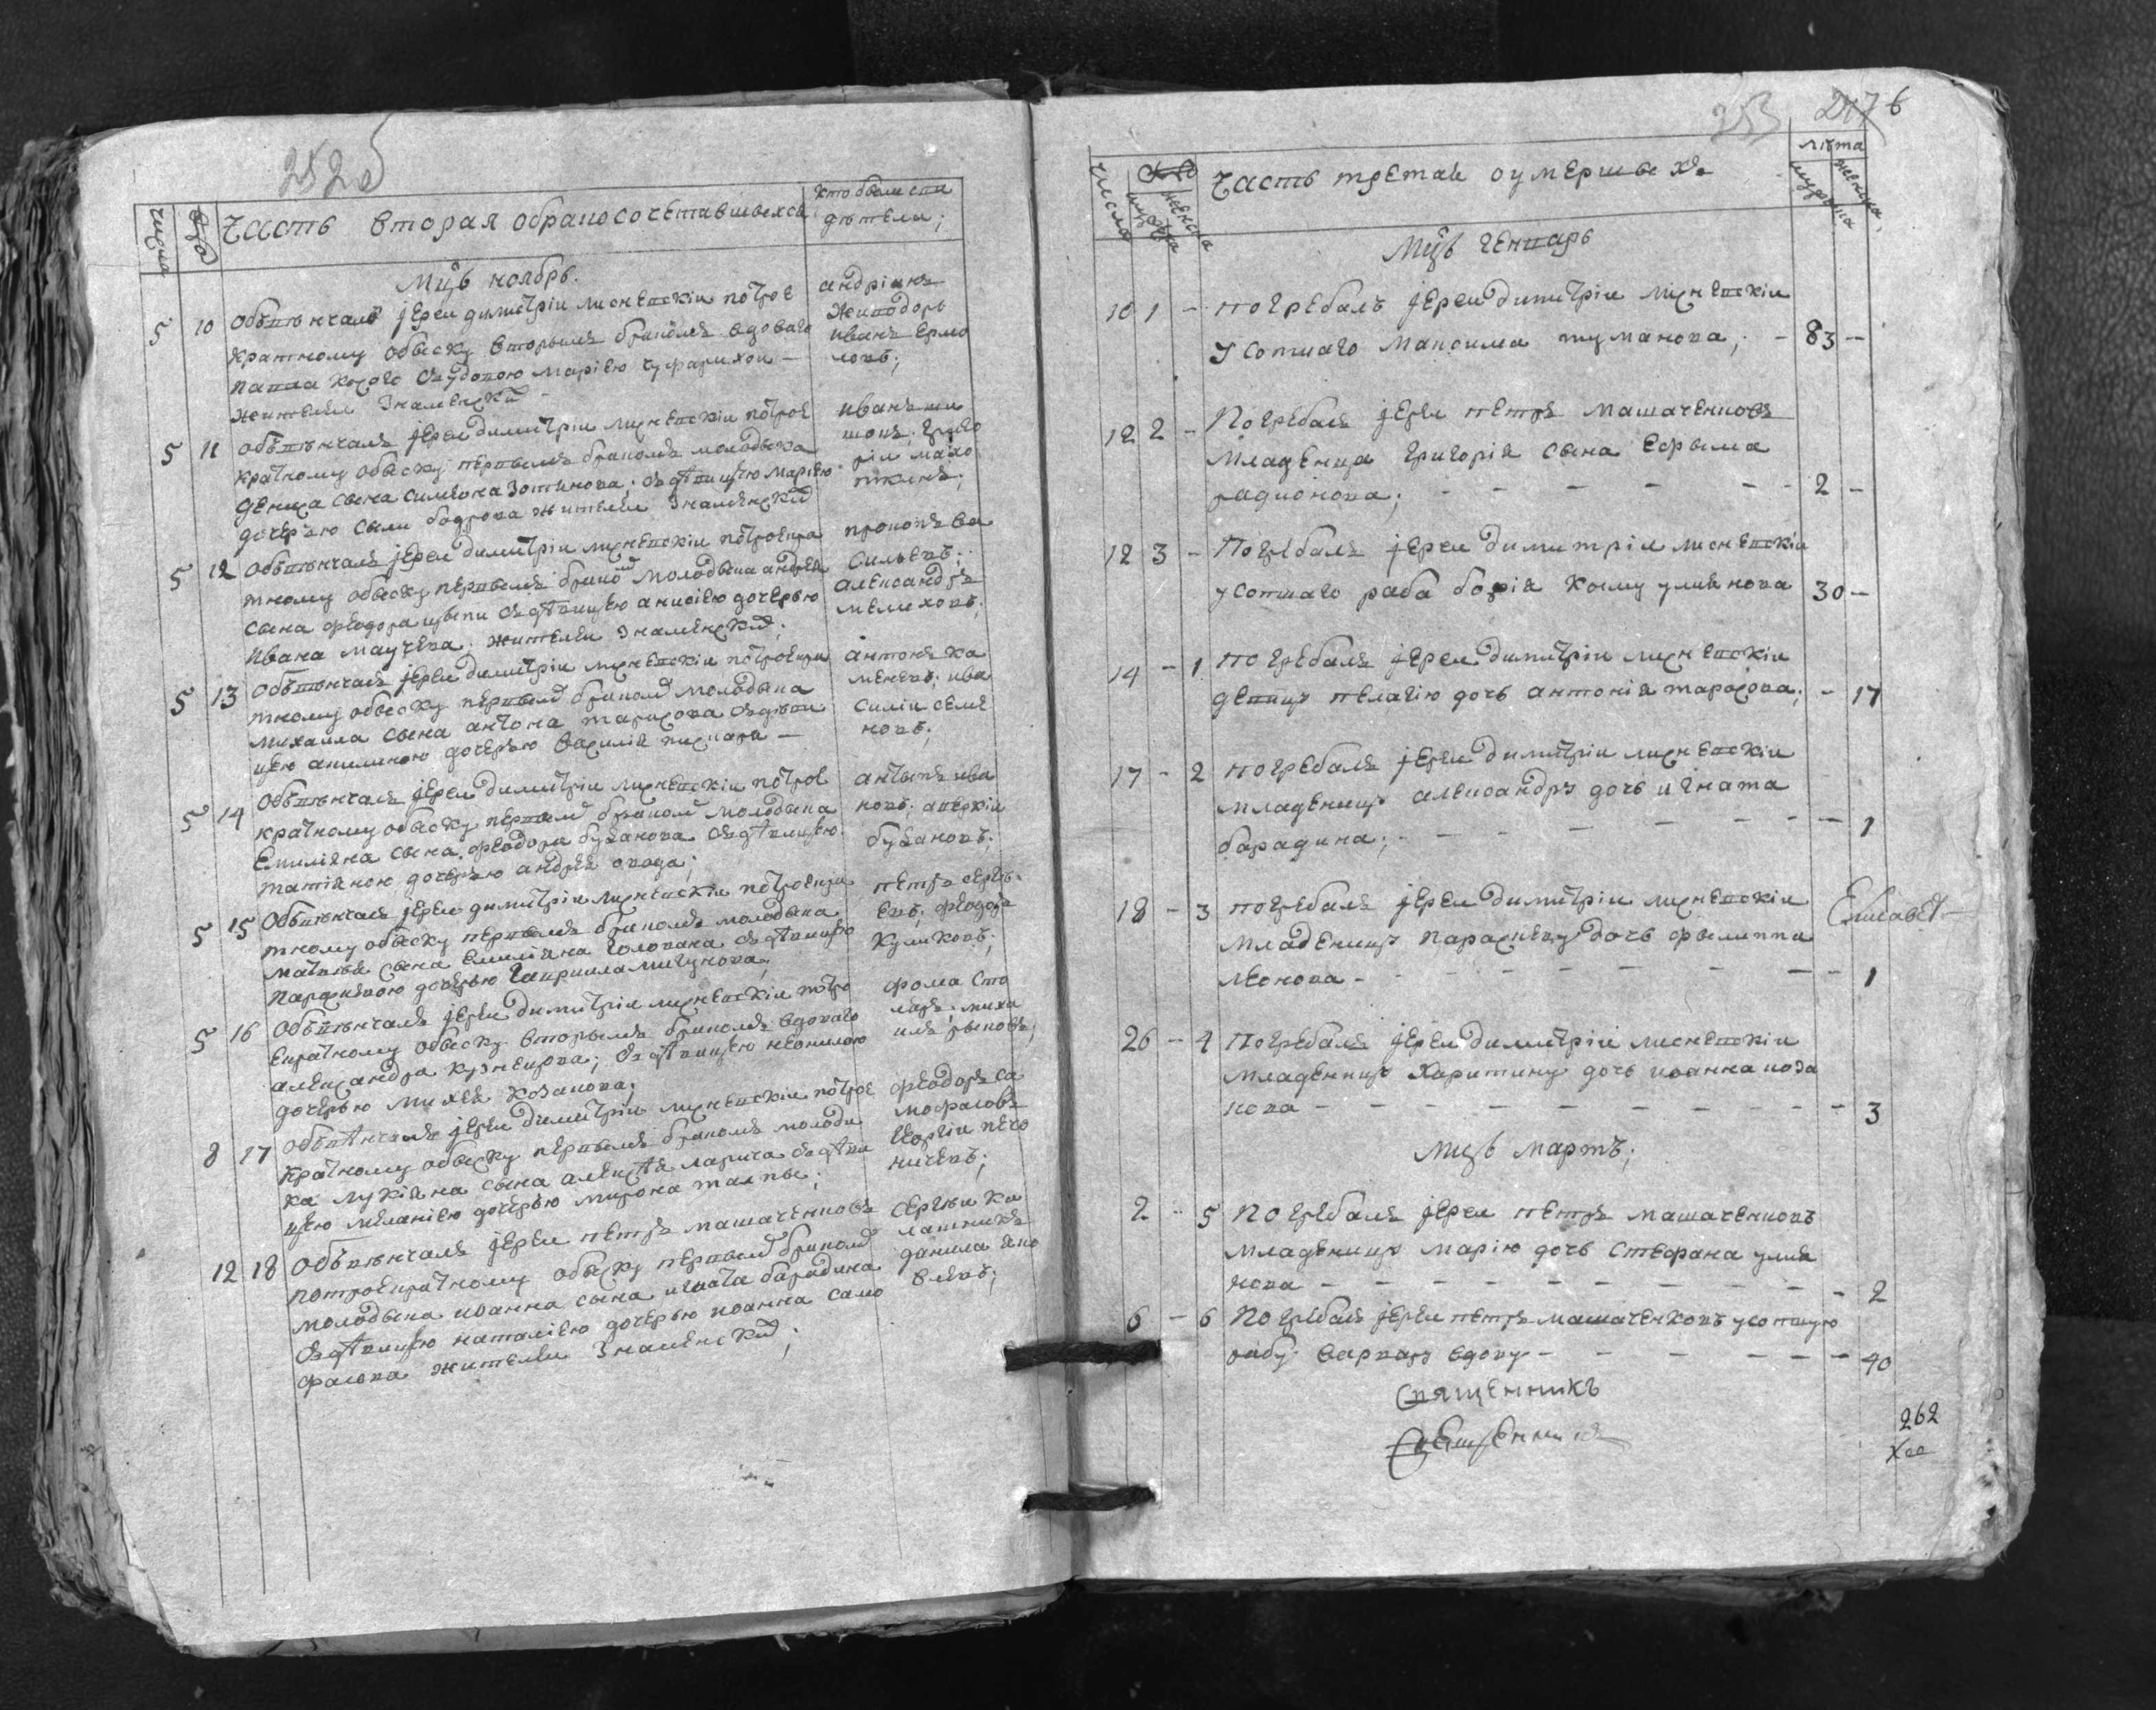 252 об
числа
Часть вторая обракосочетавшихся
кто были сви
дѣтели;
Мцъ ноябрь.
5 10 Обвѣнчалъ іереи димитріи лисневскіи потрое
кратному обыску вторымъ бракомъ вдоваго
павла косого съ удовою маріею
жители знаменскія
андріанъ
иванъ ермо
ловъ;
5 11 обвѣнчалъ іереи димитріи лисневскіи потрое
кратному обыску первымъ бракомъ молодыка
сына симеона зотинова съ дѣвицею маріею
дочерью сылы бодрова жители знаменскія
иванъ ши
шовъ. григо
ріи мало
5 12 обвѣнчалъ іереи димитріи лисневскіи потроекра
тному обыску первымъ бракомъ молодыка андрея
сына феодора цыпи съ дѣвицею анисіею дочерью
ивана маучева. жители знаменскія;
прокопъ ва
сильевъ;
александръ
мелиховъ;
5 13 Обвѣнчалъ іереи димитріи лисневскіи потроекра
тному обыску первымъ бракомъ молодыка
михаила сына антона тарасова съ дѣви
цею акилиною дочерью василія писнара —
антонъ ка
меневъ; ива
силіи семе
новъ;
5 14 Обвѣнчалъ іереи димитріи лисневскіи потрое
кратному обыску первымъ бракомъ молодыка
Емиліяна сына феодора бузанова съ дѣвицею
татіяною дочерью андрея овода;
антипъ ива
новъ; алексіи
бузановъ.
5 15 Обвѣнчалъ іереи димитріи лисневскіи потроекра
тному обыску первымъ бракомъ молодыка
матвѣя сына Емиліяна голована съ дѣвицею
параскевою дочерью гавриила мигунова;
петръ сергѣ
евъ; феодоръ
куликовъ;
5 16 Обвѣнчалъ іереи димитріи лисневскіи потро
екратному обыску вторымъ бракомъ вдоваго
александра кузнецова; съ дѣвицею неонилою
дочерью михея козакова;
фома сто
ляръ; миха
илъ рыковъ;
8 17 Обвѣнчалъ іереи димитріи лисневскіи потрое
кратному обыску первымъ бракомъ молоды
ка лукіяна сына алексѣя ларича съ дѣви
цею меланіею дочерью мирона талпы;
феодоръ са
мофаловъ
георгіи пего
ничевъ;
12 18 Обвѣнчалъ іереи петръ машаченковъ
потроекратному обыску первымъ бракомъ
молодыка иоанна сына игната барадина
съ дѣвицею наталіею дочерью иоанна само
фалова жители знаменскія;
Сергѣи ка
лашникъ
данила яко
влевъ;
253 247 6
числа
мужеска
женска
Часть третая оумершихъ
лѣта
мужеска
женска
Мцъ генварь
10 1 — погребалъ іереи димитріи лисневскіи
усопшаго максима туманова; — 83 —
12 2 — Погребалъ іереи петръ машаченковъ
младенца григорія сына Ефрыма
радионова; — — — — — 2 —
12 3 — Погребалъ іереи димитріи лисневскіи
усопшаго раба божія козму улянова 30 —
14 — 1 погребалъ іереи димитріи лисневскіи
девицу пелагію дочь антонія тарасова; — 17
17 — 2 погребалъ іереи димитріи лисневскіи
младеницу александру дочь игната
барадина; — — — — — — 1
18 — 3 погребалъ іереи димитріи лисневскіи
младеницу параскеву дочь филиппа
леонова — — — — — — — 1
Елисавет—
26 — 4 Погребалъ іереи димитріи лисневскіи
младеницу харитину дочь иоанна коза
кова — — — — — — — — 3
мцъ мартъ;
2 — 5 Погребалъ іереи петръ машаченковъ
младеницу марію дочь стефана уля
нова — — — — — — — 2
6 — 6 Погребалъ іереи петръ машаченковъ усопшую
рабу варвару вдову — — — — — 40
Священникъ
262